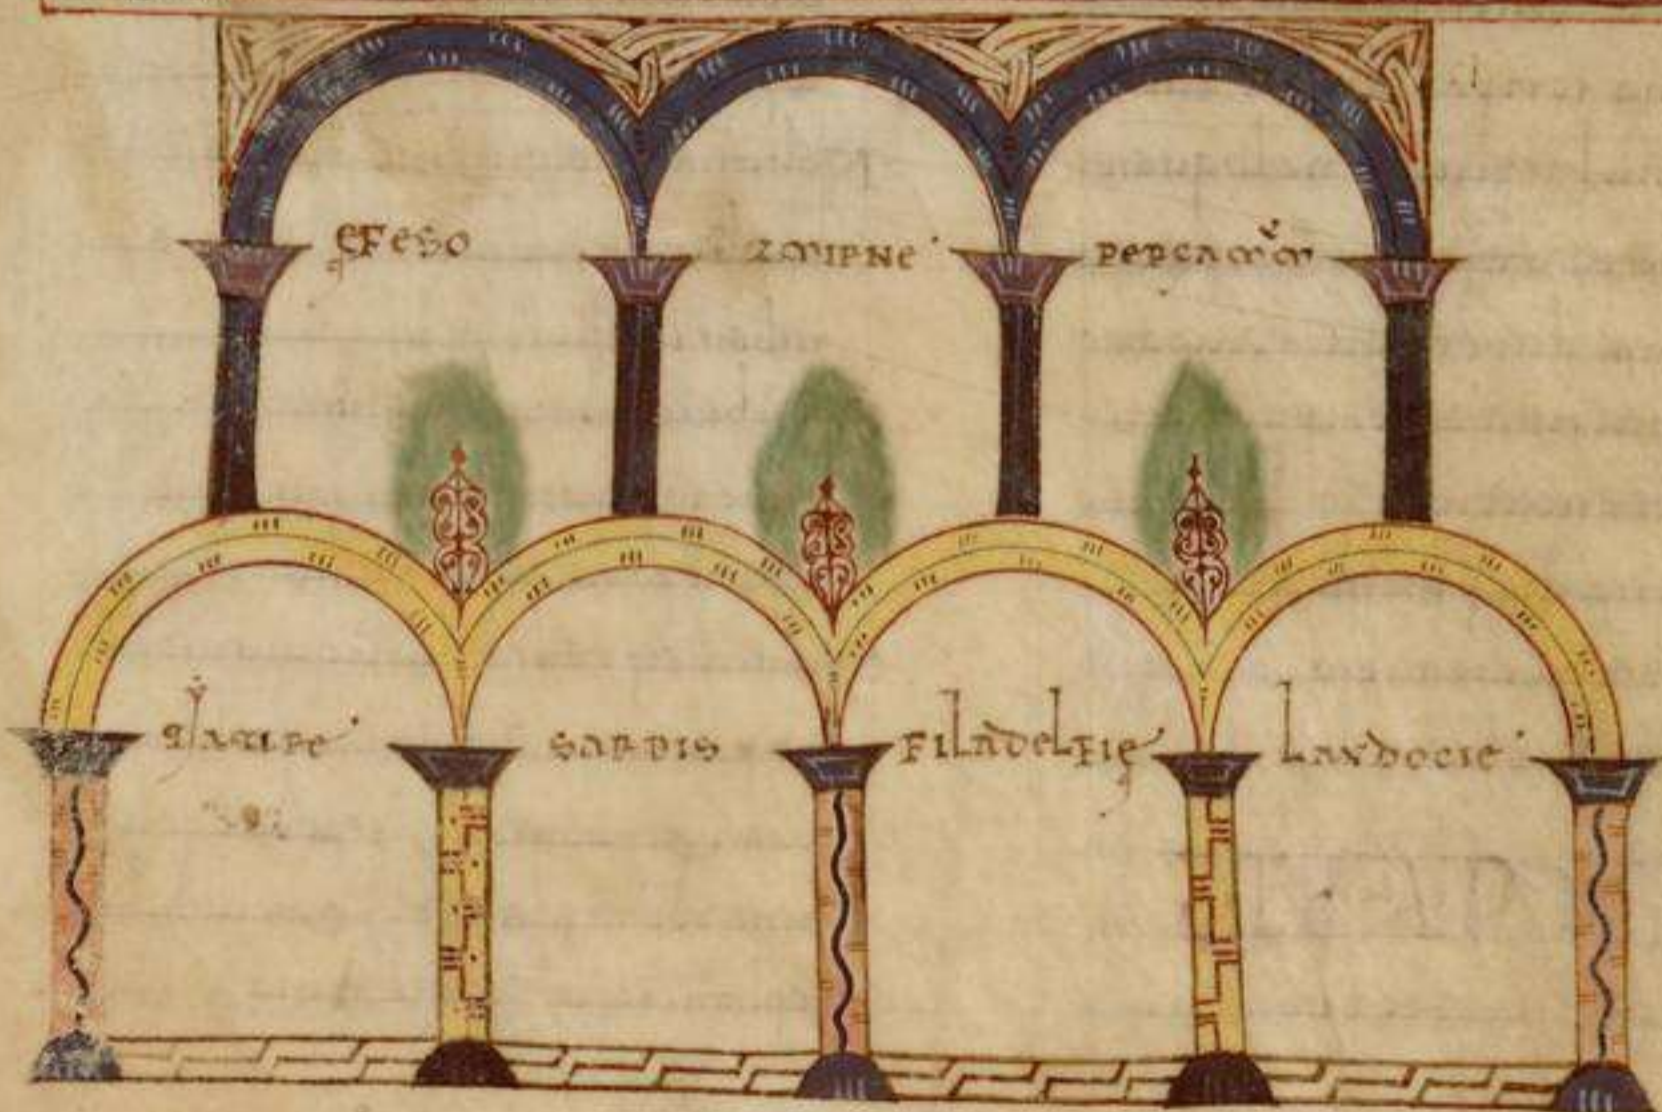 efeso zmirne pergamum
tiatire sardis filadelfie laudocie